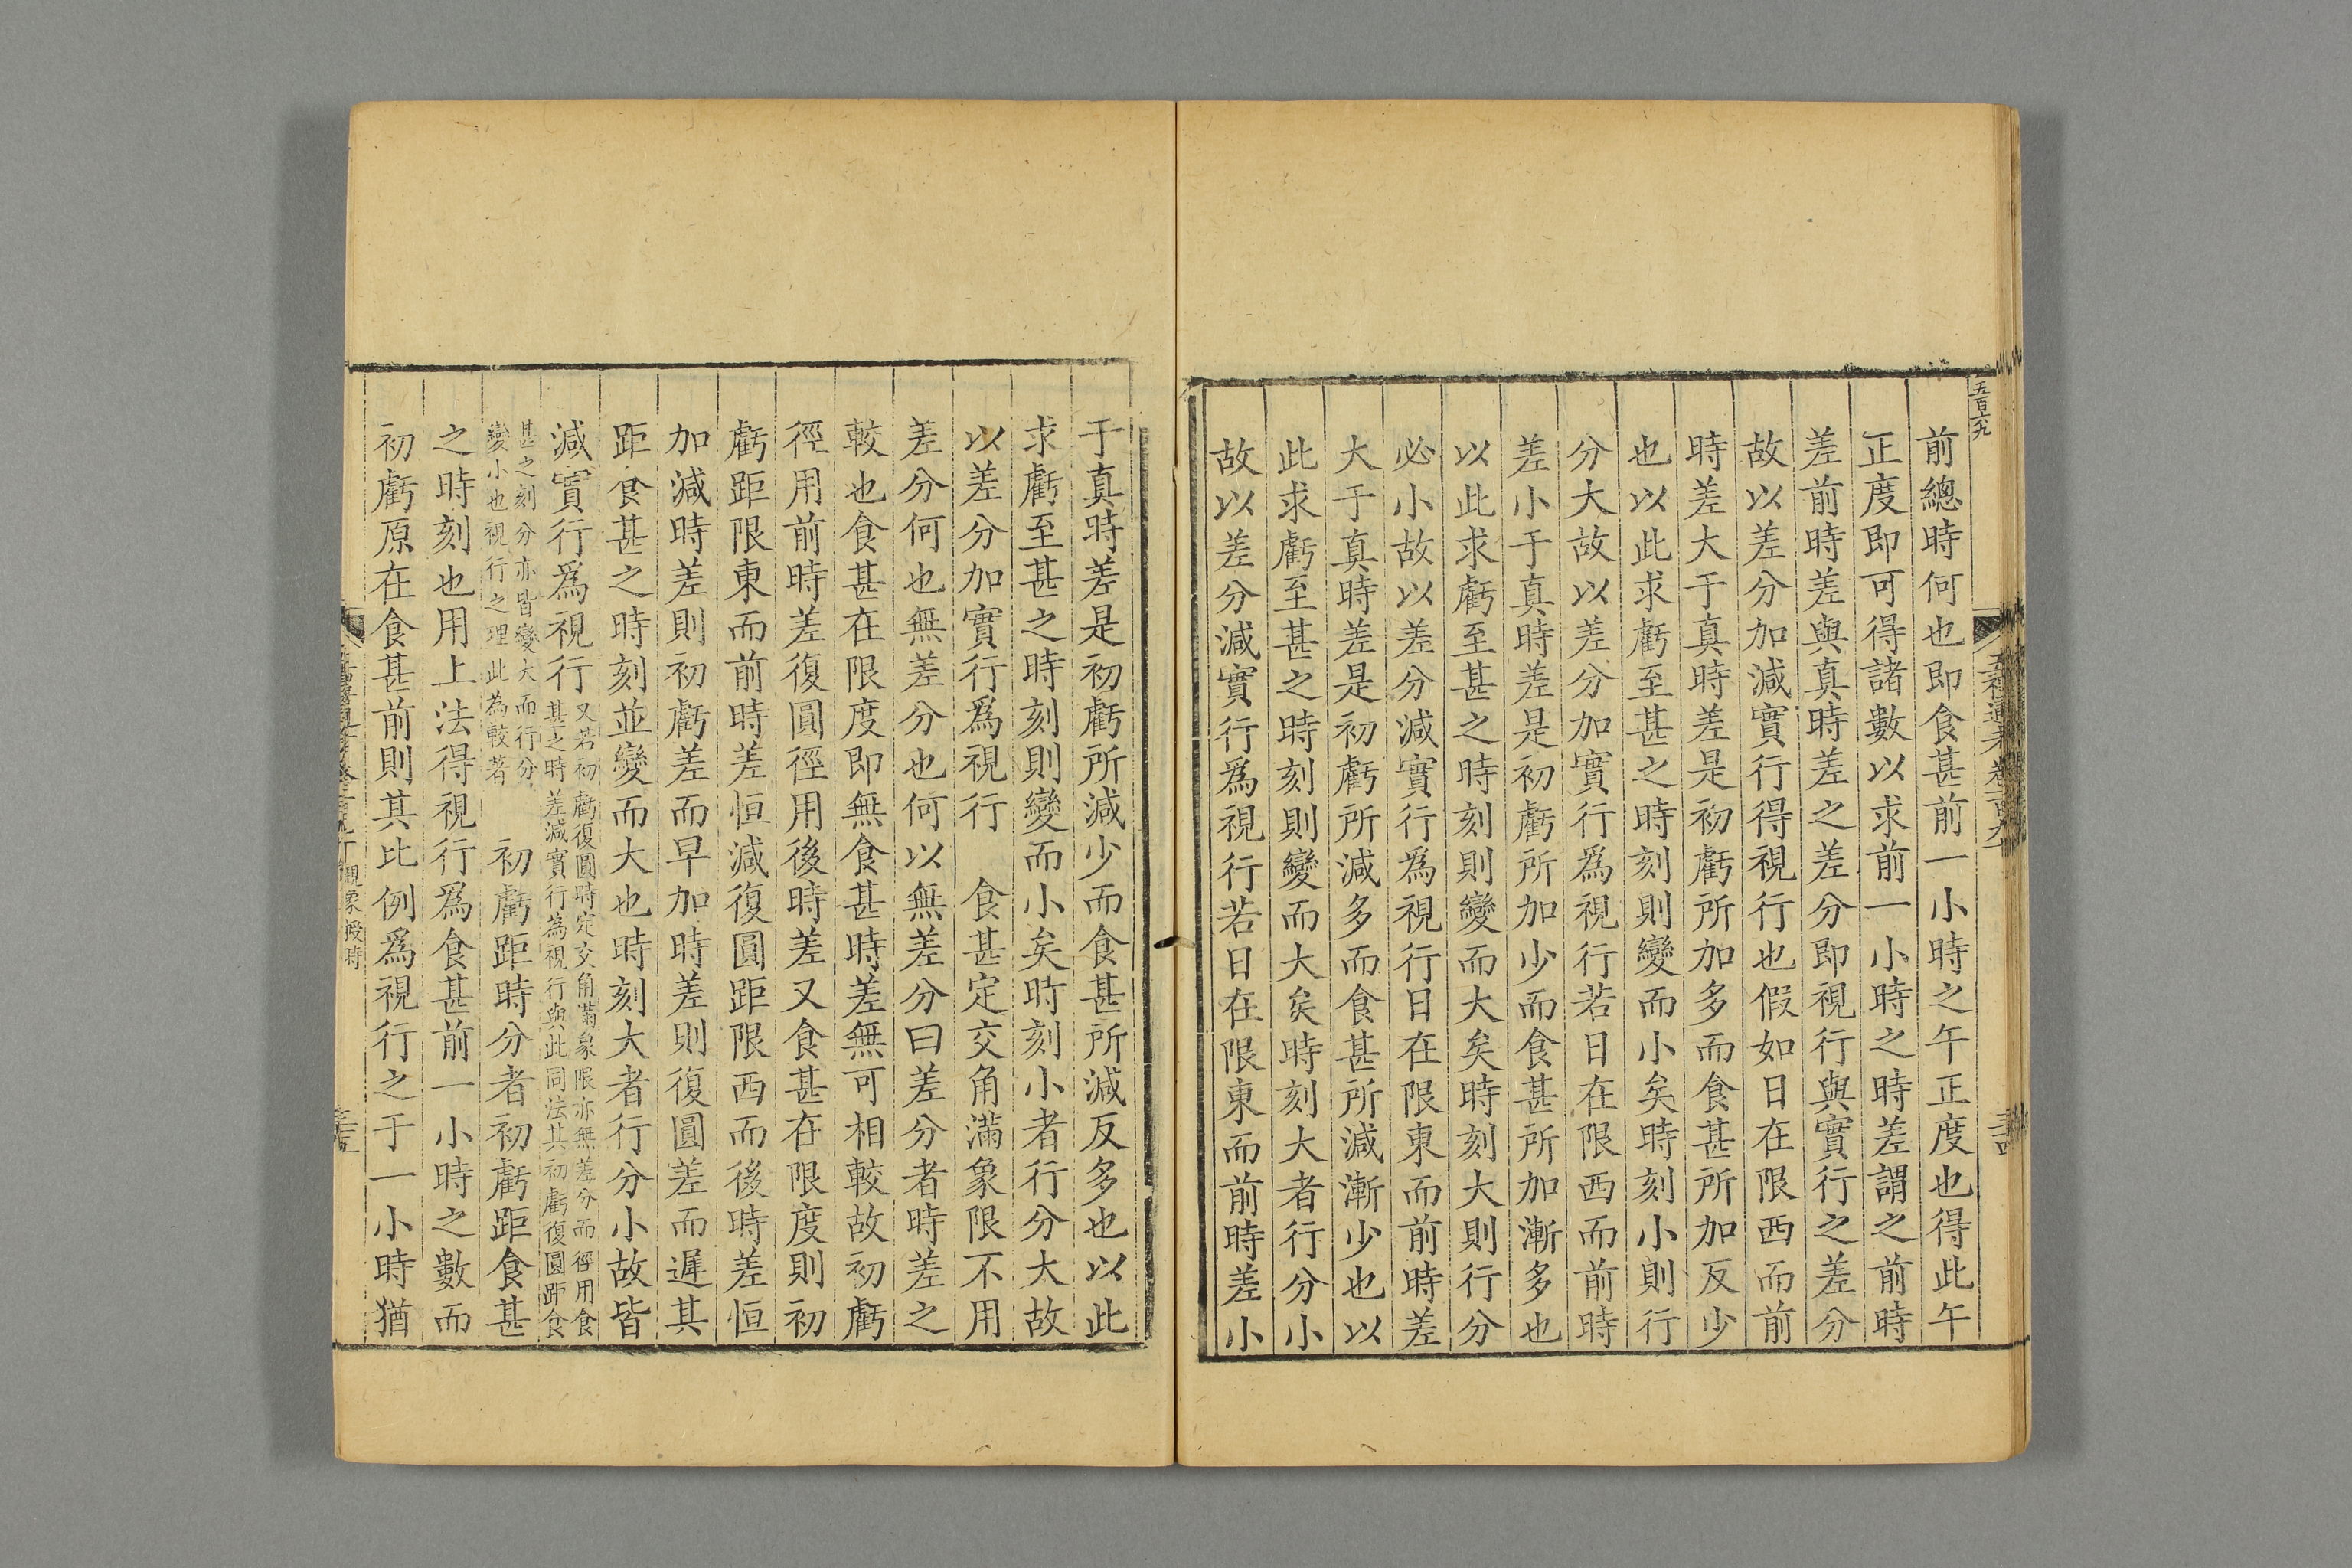 五百六九
前總時何也即食甚前一小時之午正度也得此午
正度即可得諸數以求前一小時之時差謂之前時
差前時差與真時差之差分即視行與實行之差分
故以差分加減實行得視行也假如日在限西而前
時差大于真時差是初虧所加多而食甚所加反少
也以此求虧至甚之時刻則變而小矣時刻小則行
分大故以差分加實行為視行若日在限西而前時
差小于真時差是初虧所加少而食甚所加漸多也
以此求虧至甚之時刻則變而大矣時刻大則行分
必小故以差分減實行為視行日在限東而前時差
大于真時差是初虧所減多而食甚所減漸少也以
此求虧至甚之時刻則變而大矣時刻大者行分小
故以差分減實行為視行若日在限東而前時差小
于真時差是初虧所減少而食甚所減反多也以此
求虧至甚之時刻則變而小矣時刻小者行分大故
以差分加實行為視行　食甚定交角滿象限不用
差分何也無差分也何以無差分曰差分者時差之
較也食甚在限度即無食甚時差無可相較故初虧
徑用前時差復圓徑用後時差又食甚在限度則初
虧距限東而前時差恒減復圓距限西而後時差恒
加減時差則初虧差而早加時差則復圓差而遲其
距食甚之時刻並變而大也時刻大者行分小故皆
減實行為視行又若初虧復圓時定交角滿象限亦無差分而徑用食
甚之時差減實行為視行與此同法其初虧復圓距食
甚之刻分亦皆變大而行分
變小也視行之理此為較著
初虧距時分者初虧距食甚
之時刻也用上法得視行為食甚前一小時之數而
初虧原在食甚前則其比例為視行之于一小時猶
觀象授時